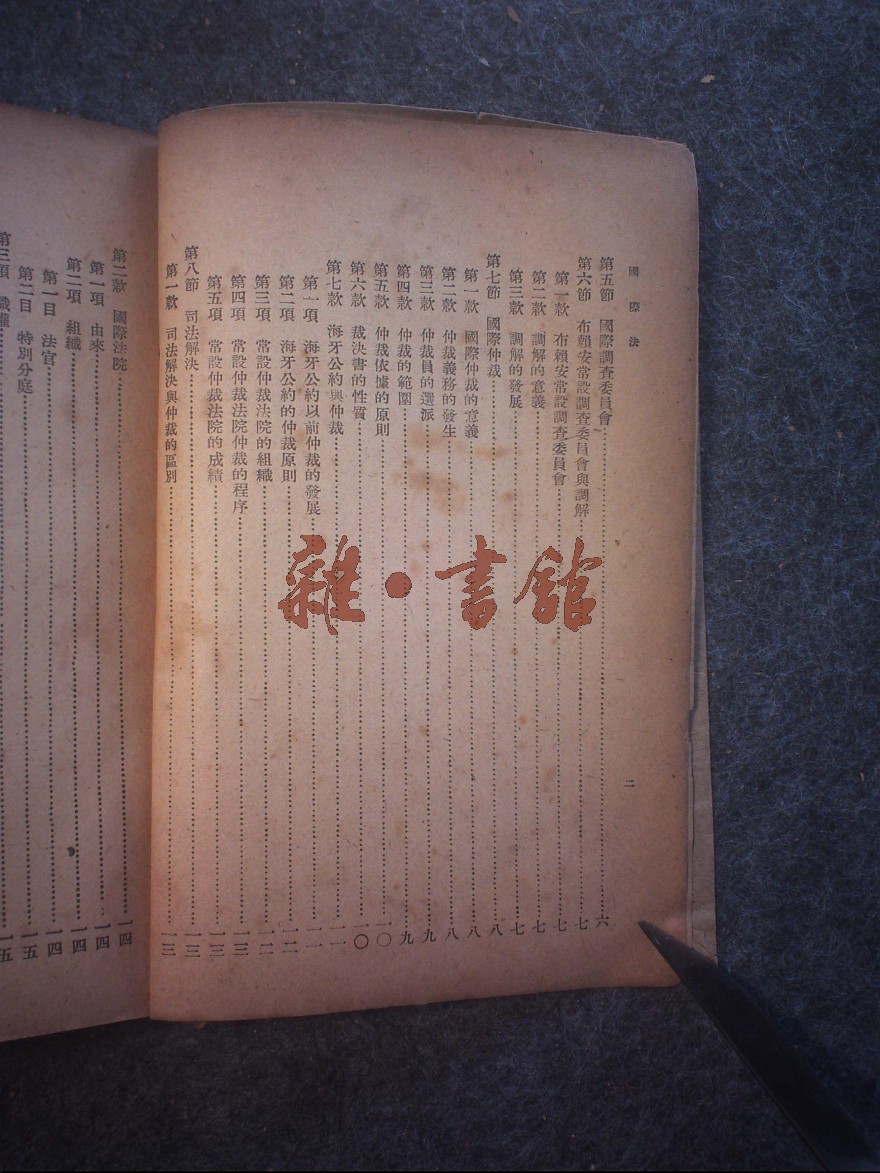 國際法
二
第五節 國際調查委員會 六
第六節 布賴安常設調查委員會與調解 七
第一款 布賴安常設調查委員會 七
第二款 調解的意義 七
第三款 調解的發展 七
第七節 國際仲裁 八
第一款 國際仲裁的意義 八
第二款 仲裁義務的發生 八
第三款 仲裁員的選派 九
第四款 仲裁的範圍 九
第五款 仲裁依據的原則 一〇
第六款 裁決書的性質 一〇
第七款 海牙公約與仲裁 一一
第一項 海牙公約以前仲裁的發展 一一
第二項 海牙公約的仲裁原則 一二
第三項 常設仲裁法院的組織 一二
第四項 常設仲裁法院仲裁的程序 一三
第五項 常設仲裁法院的成績 一三
第八節 司法解決 一三
第一款 司法解決與仲裁的區別 一三
第二款 國際法院 一四
第一項 由來 一四
第二項 組織 一四
第一目 法官 一四
第二目 特別分庭 一五
第三項 職權 一五
雜·書館